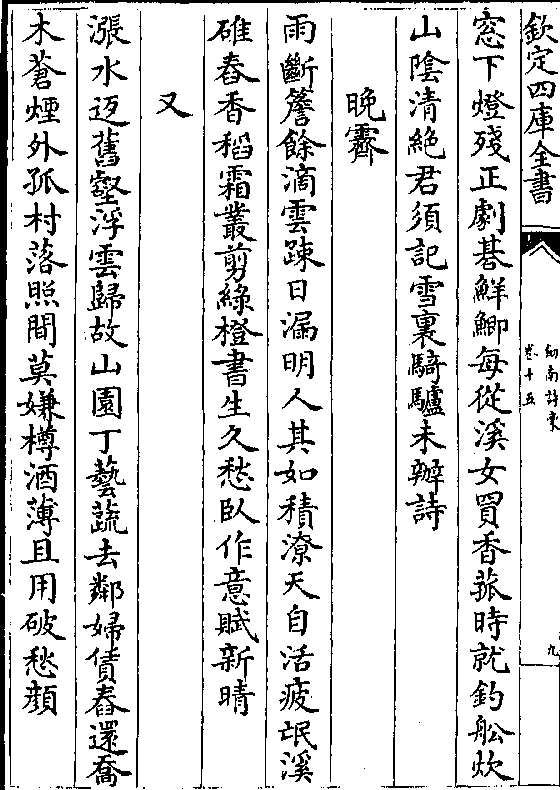 欽定四庫全書
劍南詩藁
卷十五
九
窓下燈殘正劇棊鮮鯽每從溪女買香菰時就釣船炊
山陰清絶君須記雪裏騎驢未辦詩
晚霽
雨斷簷餘滴雲踈日漏明人其如積潦天自活疲氓溪
碓舂香稻霜叢剪綠橙書生久愁臥作意賦新晴
又
漲水迈舊壑浮雲歸故山園丁藝蔬去鄰婦債舂還喬
木蒼煙外孤村落照間莫嫌樽酒薄且用破愁顔